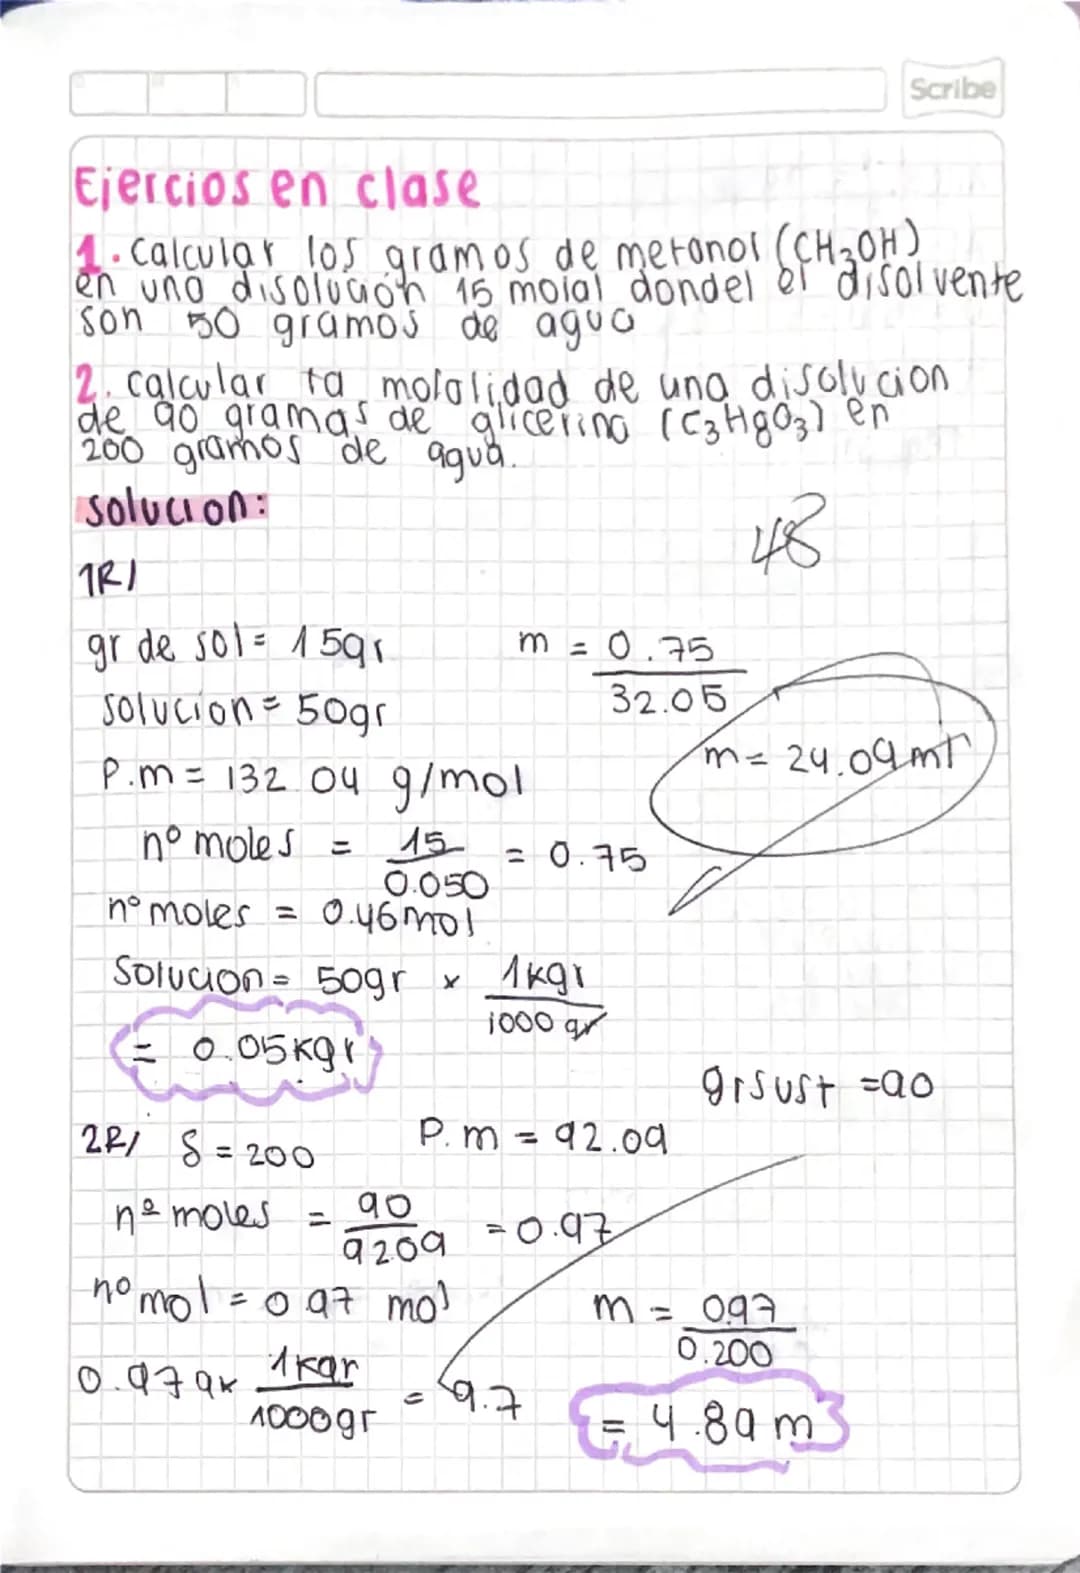 Scribe
Ejercios en clase
1. Calcular los gramos de metanol (CH3OH)
en una disolución 15 molal dondel el disolvente
son 50 gramos de agua
2. calcular ta molalidad de una disolucion
de 90 gramas de glicerina (C3H8O3) en
200 gramos de agua.
solucion:
48
1R/
gr de sol = 15gr
m = 0.75
32.05
solucion = 50gr
m = 24.09 mt
P.m = 132.04 g/mol
nº moles = 15 = 0.75
0.050
nº moles = 0.46mol
Solucion = 50gr x 1kgr
1000 gr
= 0.05kgr
gr sust = 90
2R/ S = 200 P.m = 92.09
nº moles = 90 = 0.97
92.09
nº mol = 0.97 mol
m = 0.97
0.200
0.97 gx 1kgr = 9.7
1000gr
= 4.89 m